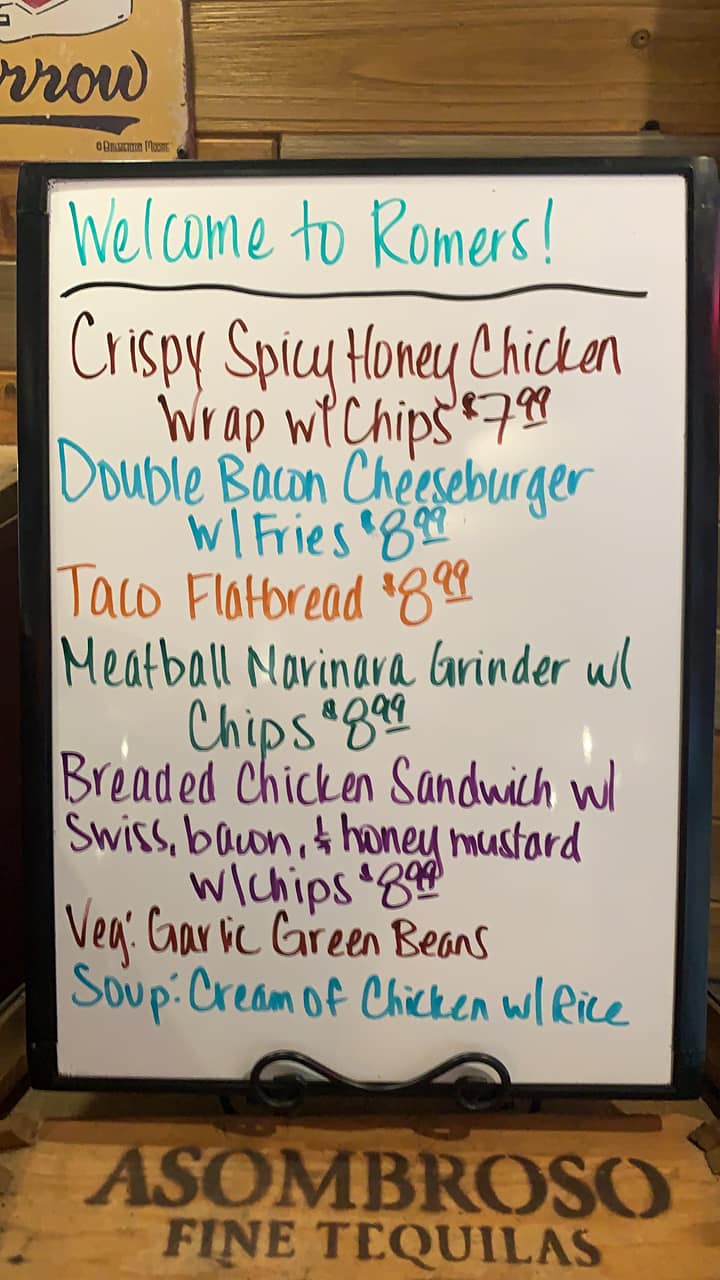 rrow
Welcome to Romers!
Crispy Spicy Honey Chicken
Wrap w/ Chips $7.99
Double Bacon Cheeseburger
w/ Fries $8.99
Taco Flatbread $8.99
Meatball Marinara Grinder w/
Chips $8.99
Breaded Chicken Sandwich w/
Swiss, bacon, & honey mustard
w/chips $8.99
Veg: Garlic Green Beans
Soup: Cream of Chicken w/ Rice
ASOMBROSO
FINE TEQUILAS